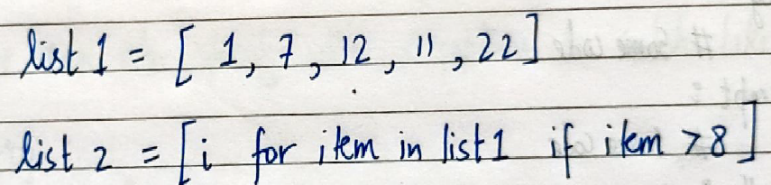 list 1 = [ 1, 7, 12, 11, 22]
list 2 = [i for item in list1 if item >8]